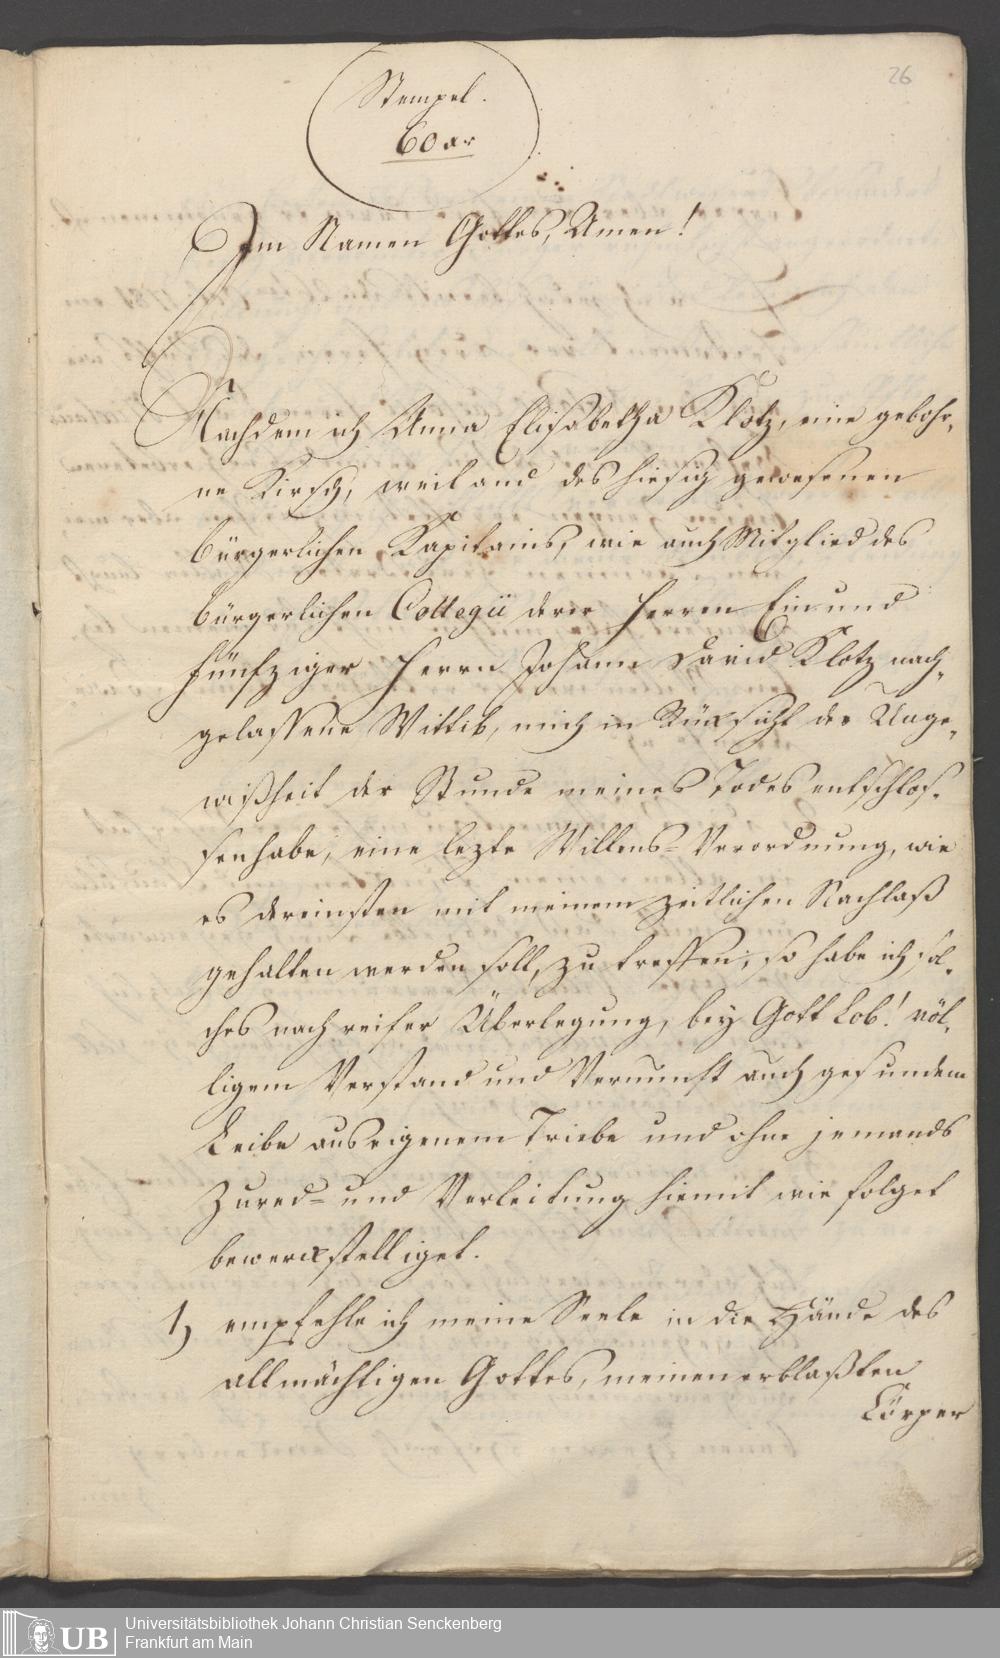 26
Stempel.
60 ar
Im Namen Gottes, Amen!
Nachdem ich Anna Elisabetha Klotz, eine gebohr-
ne Kirsch, weiland des hiesig gewesenen
bürgerlichen Kapitains, wie auch Mitglied des
bürgerlichen Collegii derer Herren Ein und
fünfziger Herrn Johann David Klotz nach-
gelassene Wittib, mich in Rüksicht der Unge-
wißheit der Stunde meines Todes entschlos-
sen habe, eine lezte Willens-Verordnung, wie
es dereinsten mit meinem zeitlichen Nachlaß
gehalten werden soll, zu treffen, so habe ich sol-
ches nach reifer Überlegung, bey Gott Lob! völ-
ligem Verstand und Vernunft auch gesundem
Leibe aus eigenem Triebe und ohne jemands
Zured- und Verleitung hiemit wie folget
bewerckstelliget.
1) empfehle ich meine Seele in die Hände des
allmächtigen Gottes, meinen erblaßten
Cörper
UB Universitätsbibliothek Johann Christian Senckenberg
Frankfurt am Main